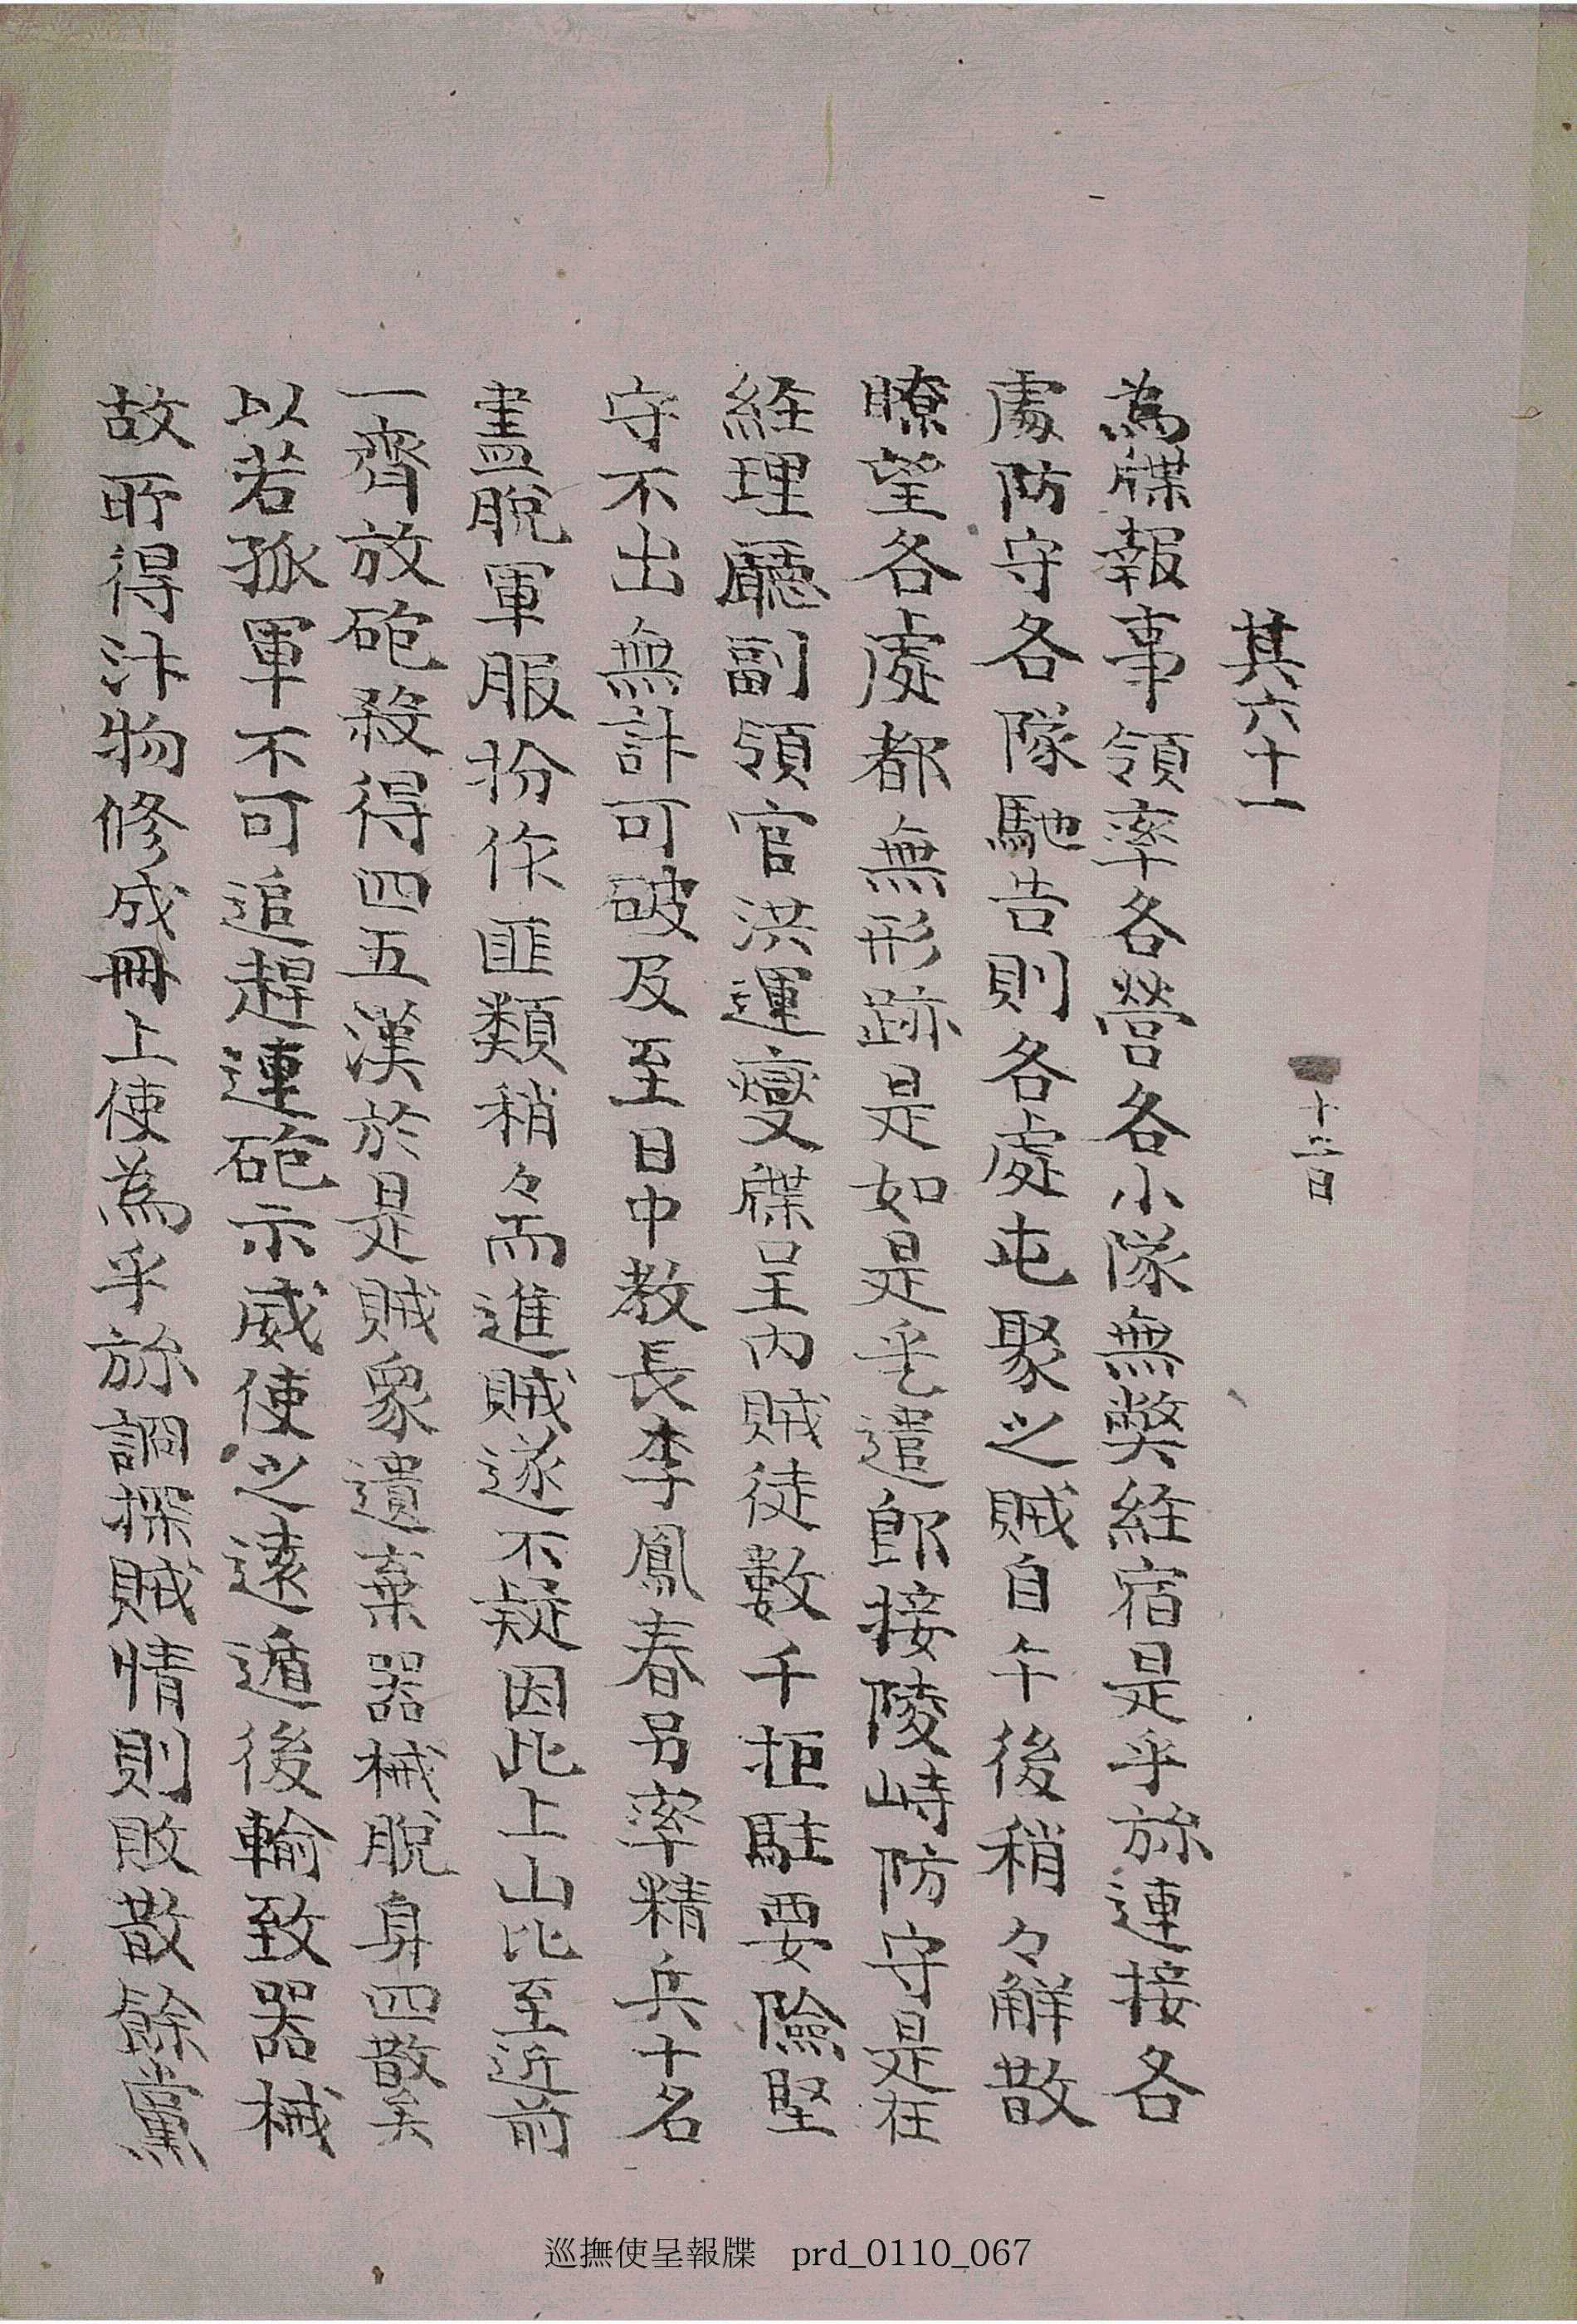 十三日
其六十一
為牒報事領率各營各小隊無弊經宿是乎旀連接各
處防守各隊馳告則各處屯聚之賊自午後稍々解散
瞭望各處都無形跡是如是乎乞遣郎接陵峙防守是在
経理廳副領官洪運燮牒呈內賊徒數千拒駐要險堅
守不出無計可破及至日中教長李鳳春另率精兵十名
盡脫軍服扮作匪類稍々而進賊遂不疑因此上山比至近前
一齊放砲殺得四五漢於是賊衆遺棄器械脫身四散矣
以若孤軍不可追趕連砲示威使之遠遁後輸致器械
故所得汁物修成冊上使為乎旀詗探賊情則敗散餘黨
巡撫使呈報牒 prd_0110_067